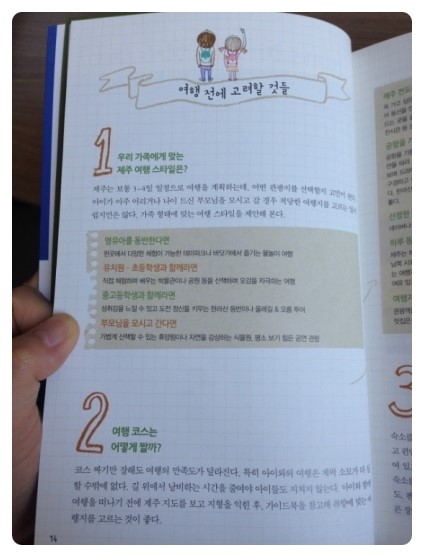 여행 전에 고려할 것들
1
우리 가족에게 맞는
제주 여행 스타일은?
제주는 보통 3~4일 일정으로 여행을 계획하는데, 어떤 관광지를 선택할지 고민이
아이가 아주 어리거나 나이 드신 부모님을 모시고 갈 경우 적당한 여행지를 고르는
쉽지만은 않다. 가족 형태에 맞는 여행 스타일을 제안해 본다.
영유아를 동반한다면
한곳에서 다양한 체험이 가능한 테마파크나 바닷가에서 즐기는 물놀이 여행
유치원·초등학생과 함께라면
직접 체험하며 배우는 박물관이나 공원 등을 산책하며 오감을 자극하는 여행
중고등학생과 함께라면
성취감을 느낄 수 있고 도전 정신을 키우는 한라산 등반이나 올레길 & 오름 투어
부모님을 모시고 간다면
가볍게 산책할 수 있는 휴양림이나 자연을 감상하는 식물원, 평소 보기 힘든 공연 관람
2
여행 코스는
어떻게 짤까?
코스 짜기만 잘해도 여행의 만족도가 달라진다. 특히 아이와의 여행은 체력 소모가
할 수밖에 없다. 길 위에서 낭비하는 시간을 줄여야 아이들도 지치지 않는다. 아이와 함께
여행을 떠나기 전에 제주 지도를 보고 지형을 익힌 후, 가이드북을 참고해 취향에 맞는
행지를 고르는 것이 좋다.
14
3